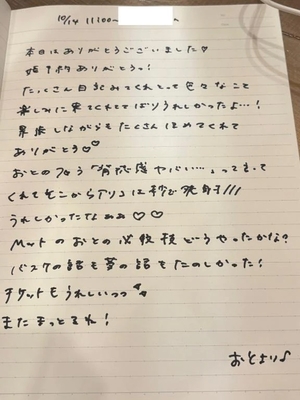 10/14 11:00~
本日はありがとうございました♡
予約ありがとうっ!
たっくさん目
とって色々なこと
楽しみに来てくれててばりうれしかったよ…!
しながらもたくさんほめてくれて
ありがとう♡♡
おとのフェラ「背徳感ヤバい…」って言って
くれてそこから
は秒で
///
うれしかったなぁぁ♡♡
Mットのおとの必殺技どうやったかな?
バスケの話も夢の話もたのしかった!
チケットもうれしいっっ
またまっとるね!
おとより♪